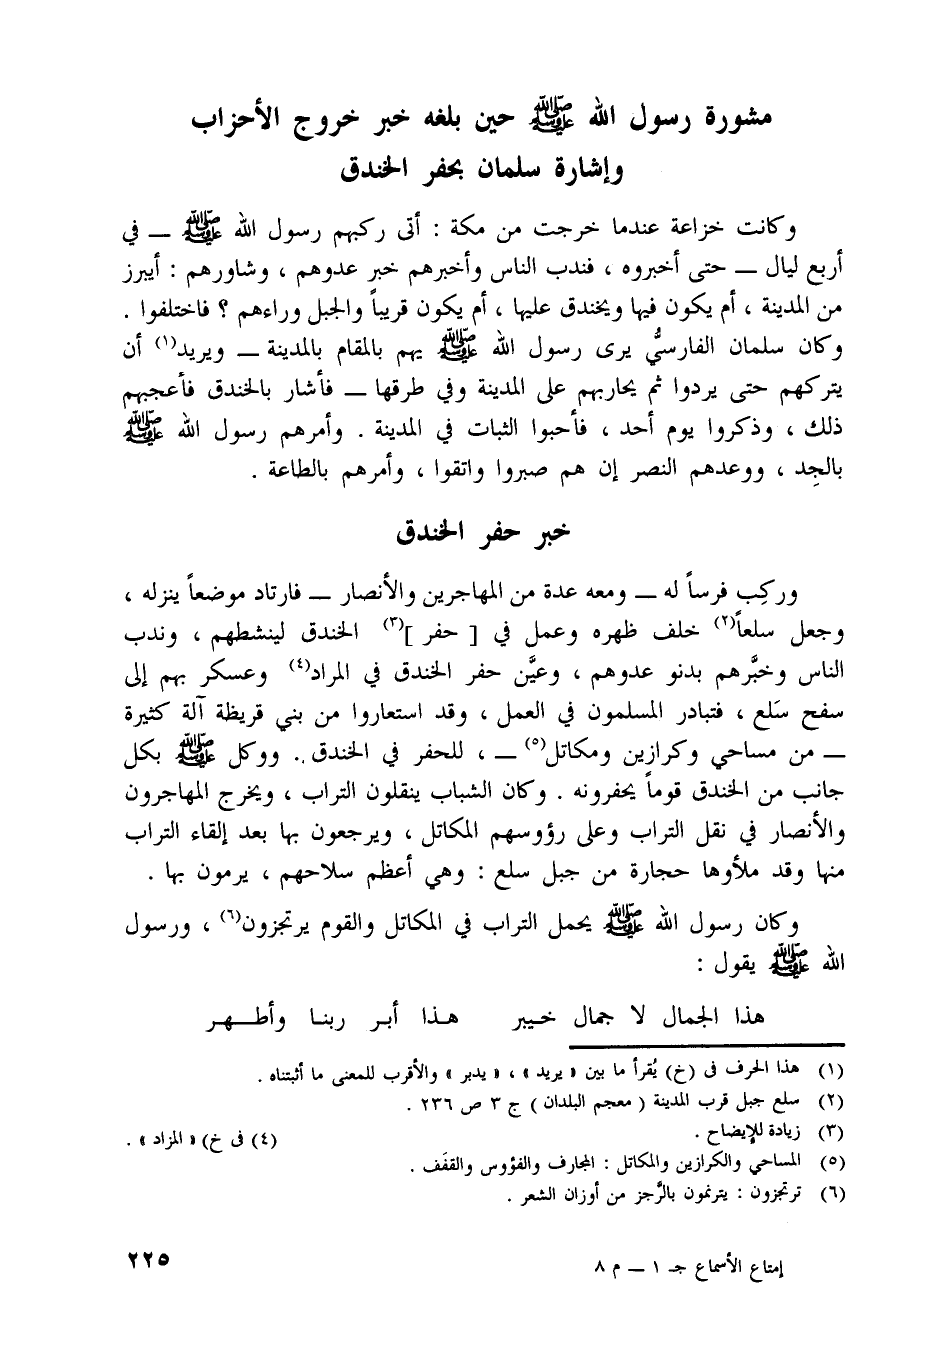 مشورة رسول الله ﷺ حين بلغه خبر خروج الأحزاب
وإشارة سلمان بحفر الخندق
وكانت خزاعة عندما خرجت من مكة : أتى ركبهم رسول الله ﷺ ــ في
أربع ليال ــ حتى أخبروه ، فندب الناس وأخبرهم خبر عدوهم ، وشاورهم : أيبرز
من المدينة ، أم يكون فيها ويخندق عليها ، أم يكون قريباً والجبل وراءهم ؟ فاختلفوا .
وكان سلمان الفارسيُّ يرى رسول الله ﷺ يهم بالمقام بالمدينة ــ ويريد(١) أن
يتركهم حتى يردوا ثم يحاربهم على المدينة وفي طرقها ــ فأشار بالخندق فأعجبهم
ذلك ، وذكروا يوم أحد ، فأحبوا الثبات في المدينة . وأمرهم رسول الله ﷺ
بالجِد ، ووعدهم النصر إن هم صبروا واتقوا ، وأمرهم بالطاعة .
خبر حفر الخندق
وركِب فرساً له ــ ومعه عدة من المهاجرين والأنصار ــ فارتاد موضعاً ينزله ،
وجعل سلعاً(٢) خلف ظهره وعمل في [ حفر ](٣) الخندق لينشطهم ، وندب
الناس وخبَّرهم بدنو عدوهم ، وعيَّن حفر الخندق في المراد(٤) وعسكر بهم إلى
سفح سَلع ، فتبادر المسلمون في العمل ، وقد استعاروا من بني قريظة آلة كثيرة
ــ من مساحي وكرازين ومكاتل(٥) ــ ، للحفر في الخندق . ووكل ﷺ بكل
جانب من الخندق قوماً يحفرونه . وكان الشباب ينقلون التراب ، ويخرج المهاجرون
والأنصار في نقل التراب وعلى رؤوسهم المكاتل ، ويرجعون بها بعد إلقاء التراب
منها وقد ملأوها حجارة من جبل سلع : وهي أعظم سلاحهم ، يرمون بها .
وكان رسول الله ﷺ يحمل التراب في المكاتل والقوم يرتجزون(٦) ، ورسول
الله ﷺ يقول :
هذا الجمال لا جمال خيبر هـذا أبـر ربنـا وأطـهـر
(١) هذا الحرف فى (خ) يُقرأ ما بين « يريد » ، « يدبر » والأقرب للمعنى ما أثبتناه .
(٢) سلع جبل قرب المدينة ( معجم البلدان ) ج ٣ ص ٢٣٦ .
(٣) زيادة للإيضاح . (٤) فى خ) « المزاد » .
(٥) المساحي والكرازين والمكاتل : المجارف والفؤوس والقفَف .
(٦) ترتجزون : يترنمون بالرَّجز من أوزان الشعر .
إمتاع الأسماع جـ ١ ــ م ٨
٢٢٥